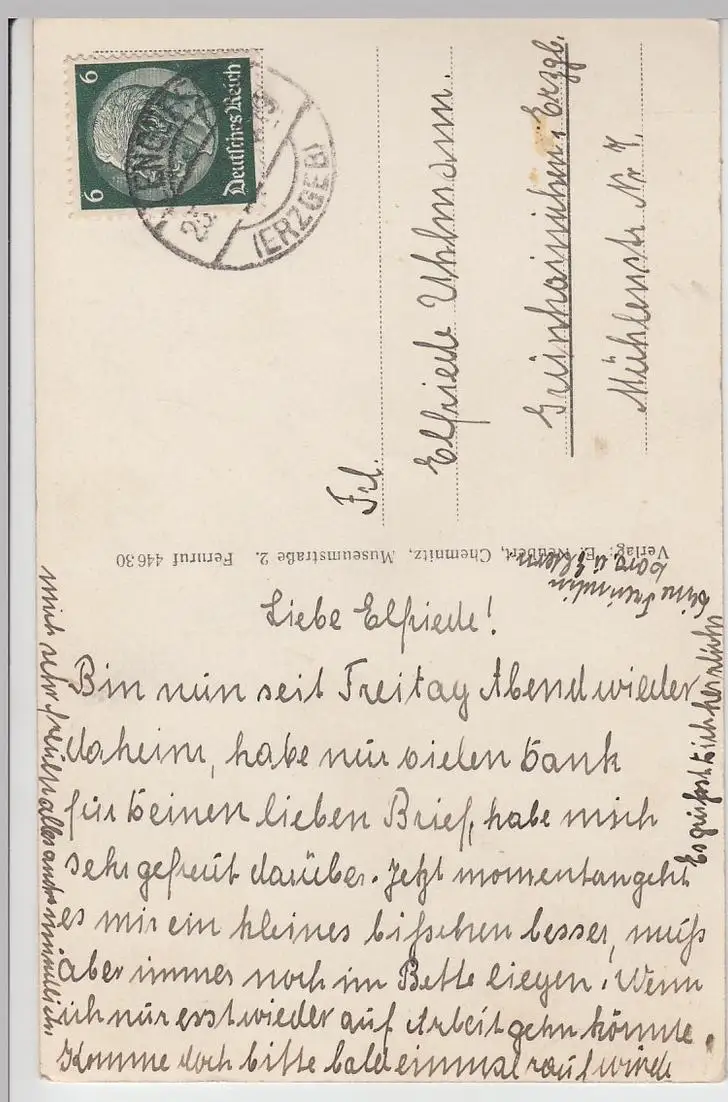 6
6
Deutsches Reich
(ERZGEB)
Frl.
Elfriede Uhlmann.
Grünhainichen i. Erzgb.
Mühlenstr. Nr 7.
Verlag: E. Neubert, Chemnitz, Museumstraße 2. Fernruf 44630
Liebe Elfriede!
Bin nun seit Freitag Abend wieder
daheim, habe nur vielen Dank
für Deinen lieben Brief, habe mich
sehr gefreut darüber. Jetzt momentan geht
es mir ein kleines bißchen besser, muß
aber immer noch im Bette liegen. Wenn
ich nur erst wieder auf Arbeit gehn könnte.
Komme doch bitte bald einmal rauf würde
mich sehr freuen alles andre mündlich
Es grüßt Dich herzlichst
Deine Freundin
u. Eltern